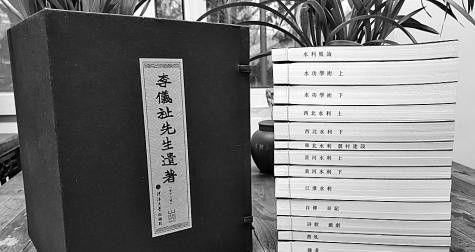 李儀祉先生遺著
水利概論
水功學術 上
水功學術 下
西北水利 上
西北水利 下
華北水利 農村建設
黃河水利 上
黃河水利 下
江淮水利
日禪 日記
詩歌 戲劇